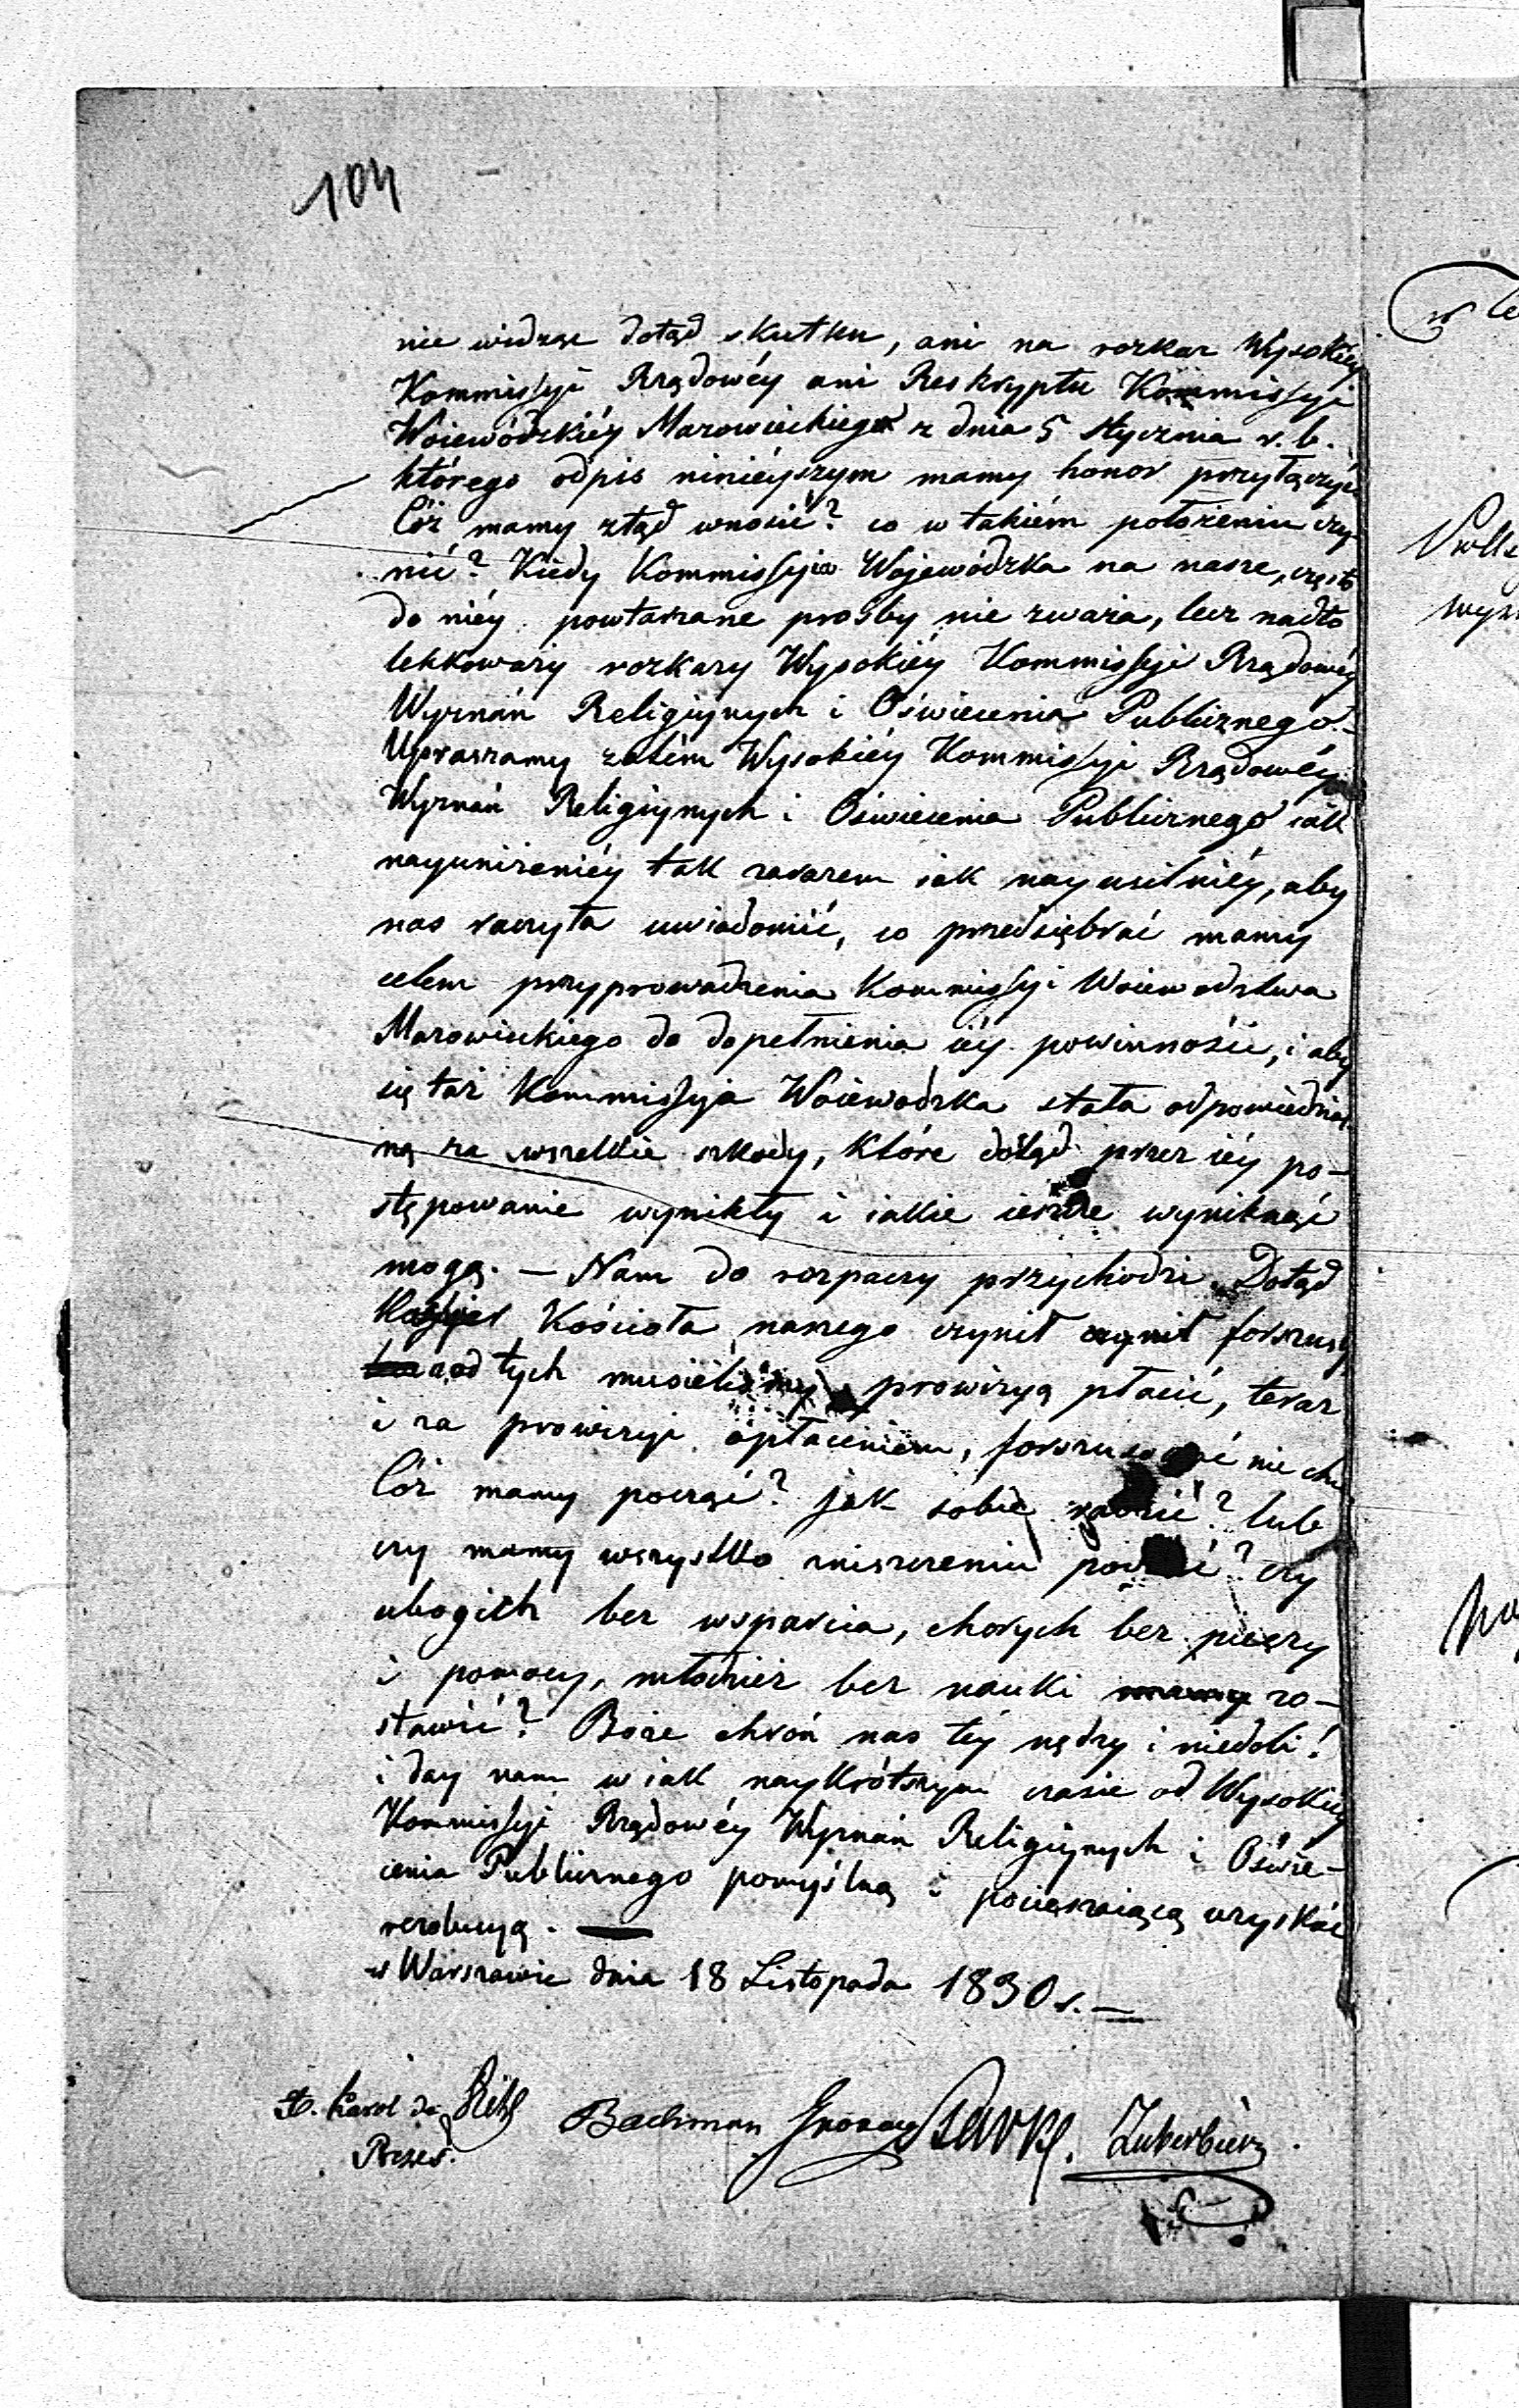 104
nie widząc dotąd skutku, ani na rozkaz Wysokiéy
Kommissyi Rządowéy ani Reskryptu Kommissyi
Woiewódzkiéy Mazowieckiego z dnia 5 Stycznia r. b.
którego odpis niniéyszym mamy honor przyłączyć
Cóż mamy ztąd wnosić? co w takiém położeniu czy-
nić? Kiedy Kommissyia Wojewódzka na nasze, często
do niéy powtarzane prośby nie zważa, lecz nadto
lekkoważy rozkazy Wysokiéy Kommissyi Rządowéy
Wyznań Religiynych i Oświecenia Publicznego.-
Upraszamy zatém Wysokiéy Kommissyi Rządowéy
Wyznań Religiynych i Oświecenia Publicznego iak
nayuniżeniéy tak zarazem iak nayusilniéy, aby
nas raczyła uwiadomić, co przedsiębrać mamy
celem przyprowadzenia Kommissyi Woiewodztwa
Mazowieckiego do dopełnienia iéy powinności, i aby
się taż Kommissyja Woiewodzka stała odpowiedzial
ną za wszelkie szkody, które dotąd przez iéy po-
stępowanie wynikły i iakie ieszcze wyniknąć
mogą. — Nam do rozpaczy przychodzi. Dotąd
Kassyer Kościoła naszego czynił czynił forszusy
a od tych musieliśmy prowizyą płacić, teraz
i za prowizyi opłaceniem, forszusować nie chce
Cóż mamy począć? jak sobie radzić? lub
czy mamy wszystko zniszczeniu podać? czy
ubogich bez wsparcia, chorych bez pieczy
i pomocy, młodzież bez nauki mamy zo-
stawić? Boże chroń nas téy nędzy i niedoli!
i day nam w iak naykrótszym czasie od Wysokiéy
Kommissyi Rządowéy Wyznań Religiynych i Oświe-
cenia Publicznego pomyślną i pocieszaiącą uzyskać
rezolucyą. —
w Warszawie dnia 18 Listopada 1830 r. —
Karol de
Bachman
Prezes.